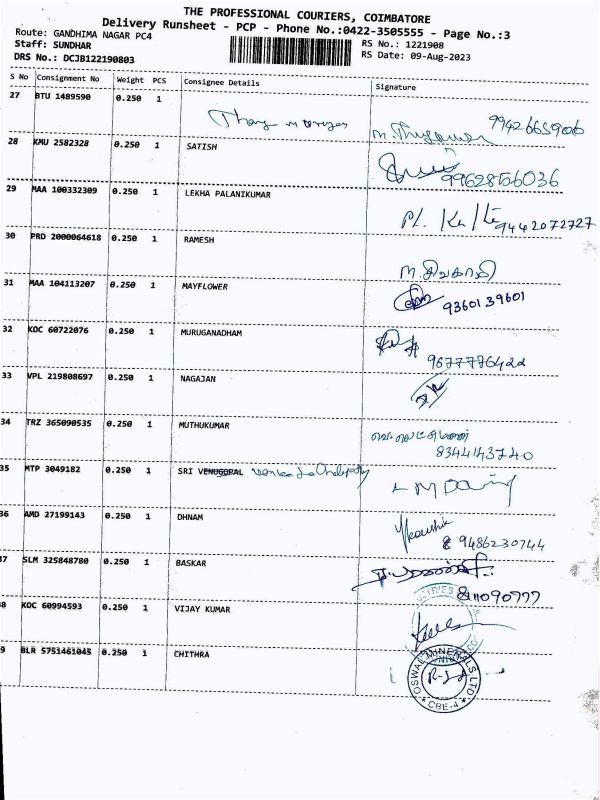 THE PROFESSIONAL COURIERS, COIMBATORE
Delivery Runsheet - PCP - Phone No.:0422-3505555 - Page No.:3
Route: GANDHIMA NAGAR PC4
Staff: SUNDHAR
DRS No.: DCJB122190803
RS No.: 1221908
RS Date: 09-Aug-2023
S No Consignment No Weight PCS Consignee Details Signature
27 BTU 1489590 0.250 1
28 KMU 2582328 0.250 1 SATISH
29 MAA 100332309 0.250 1 LEKHA PALANIKUMAR 9442072727
30 PRD 2000064618 0.250 1 RAMESH
31 MAA 104113207 0.250 1 MAYFLOWER 9360139601
32 KOC 60722076 0.250 1 MURUGANADHAM 9677786422
33 VPL 219808697 0.250 1 NAGAJAN
34 TRZ 365090535 0.250 1 MUTHUKUMAR 8344143740
35 MTP 3049182 0.250 1 SRI VENUGOPAL
36 AMD 27199143 0.250 1 DHNAM 9486230744
37 SLM 325848780 0.250 1 BASKAR
8 KOC 60994593 0.250 1 VIJAY KUMAR
9 BLR 5751461045 0.250 1 CHITHRA
OSWAL MINERALS LTD
CBE-4